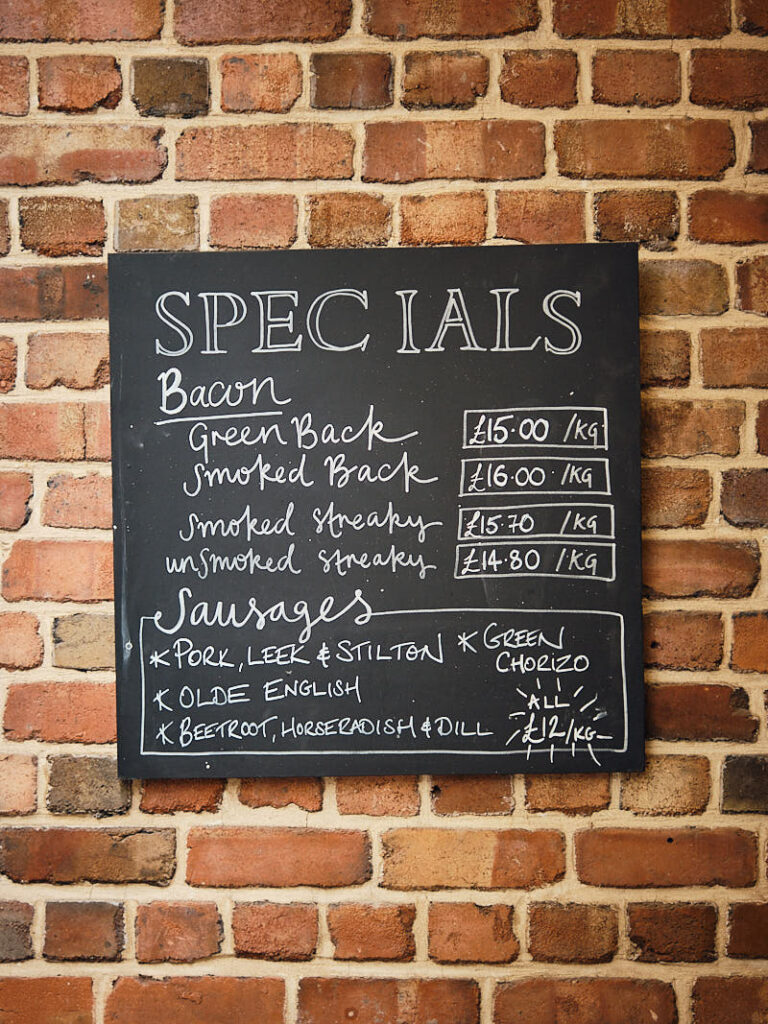 SPECIALS
Bacon
Green Back £15.00 /KG
Smoked Back £16.00 /KG
Smoked streaky £15.70 /KG
unSmoked streaky £14.80 /KG
Sausages
* PORK, LEEK & STILTON * GREEN CHORIZO
* OLDE ENGLISH
* BEETROOT, HORSERADISH & DILL
ALL
£12/KG